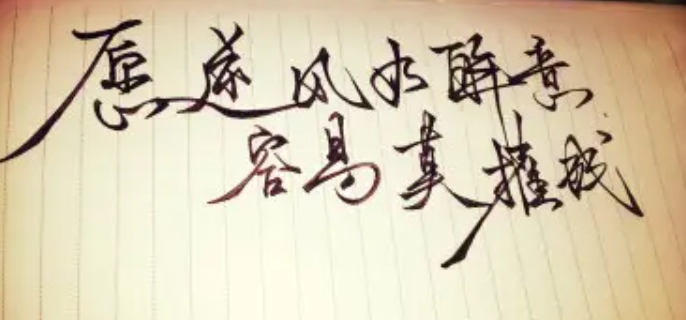 愿遂风如解意
容易莫摧残